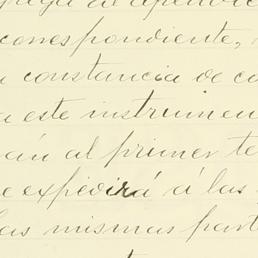 al apendice
correspondiente,
constancia de co
a este instrumen
án al primer te
e expedirá á las
las mismas part